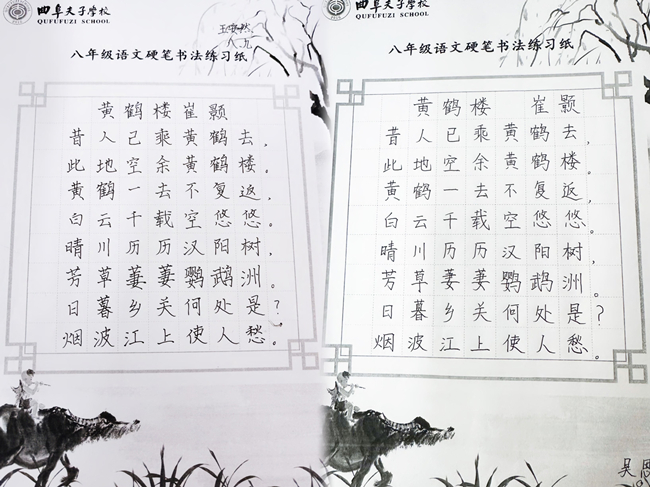 曲阜夫子学校
QUFUFUZI SCHOOL
八年级语文硬笔书法练习纸
黄鹤楼 崔颢
昔人已乘黄鹤去，
此地空余黄鹤楼。
黄鹤一去不复返，
白云千载空悠悠。
晴川历历汉阳树，
芳草萋萋鹦鹉洲。
日暮乡关何处是？
烟波江上使人愁。
曲阜夫子学校
QUFUFUZI SCHOOL
八年级语文硬笔书法练习纸
黄鹤楼 崔颢
昔人已乘黄鹤去，
此地空余黄鹤楼。
黄鹤一去不复返，
白云千载空悠悠。
晴川历历汉阳树，
芳草萋萋鹦鹉洲。
日暮乡关何处是？
烟波江上使人愁。